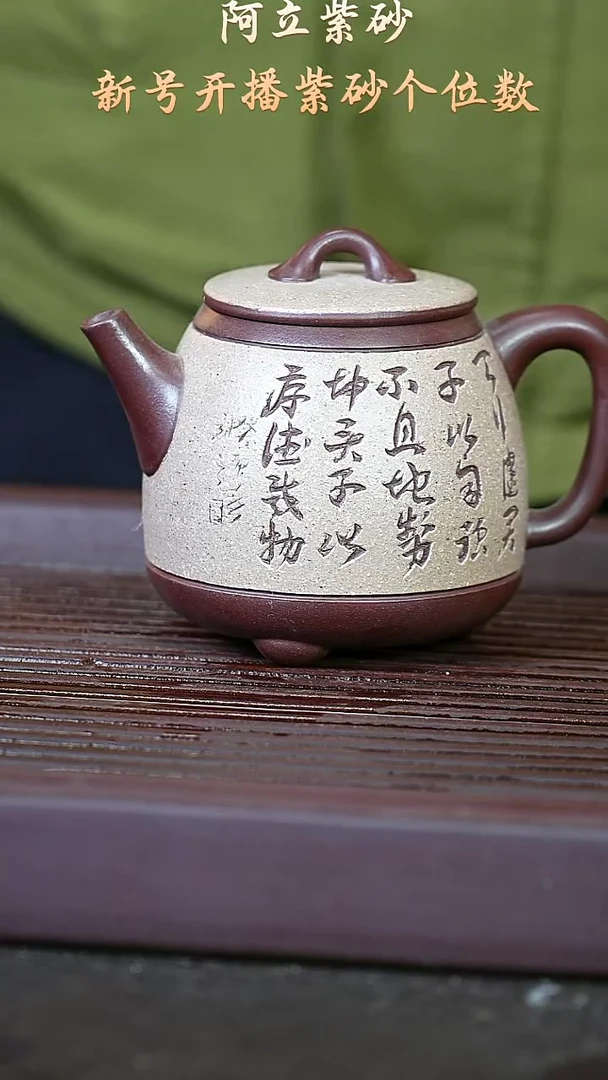 阿立紫砂
新号开播紫砂个位数
天行健君
子以自强
不息地势
坤君子以
厚德载物